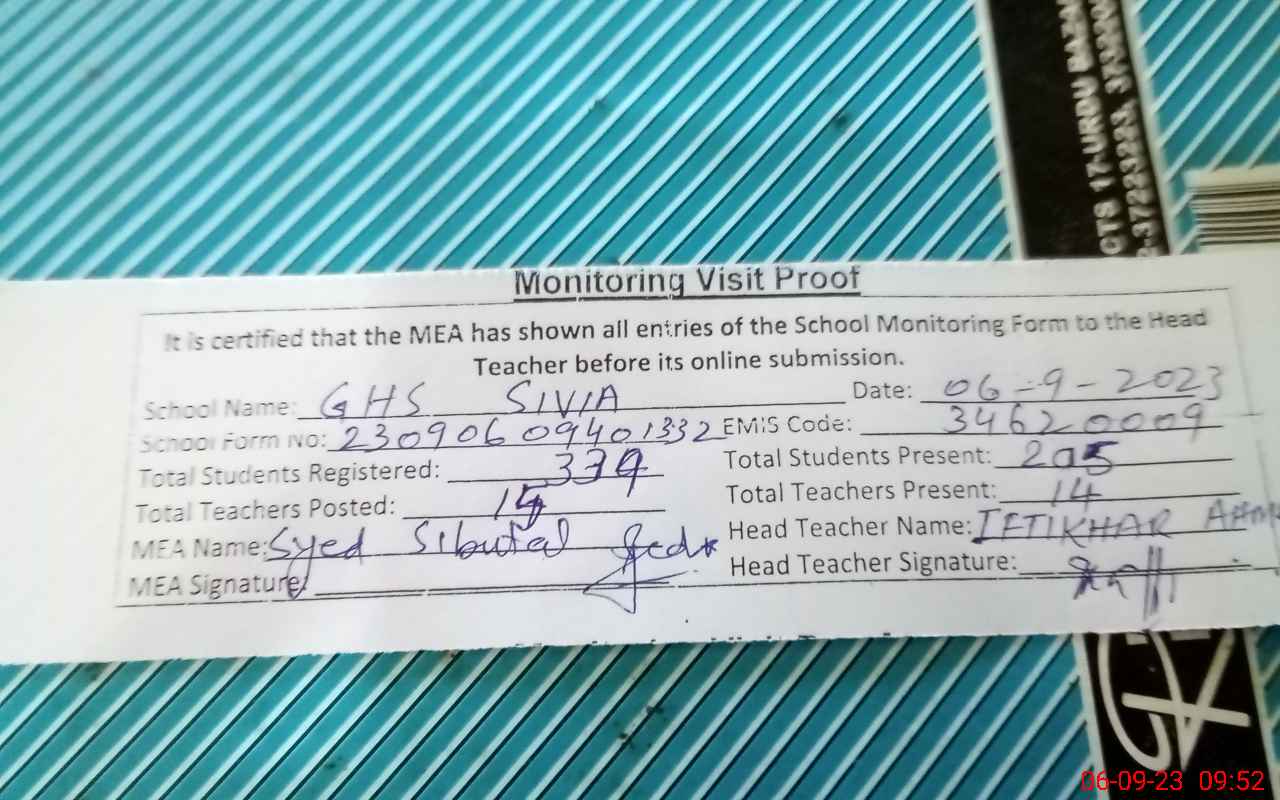 CTS 17-URDU BAZAR
37223223, 373220
Monitoring Visit Proof
It is certified that the MEA has shown all entries of the School Monitoring Form to the Head
Teacher before its online submission.
School Name: GHS SIVIA Date: 06-9-2023
School Form No: 23090609401332 EMIS Code: 34620009
Total Students Registered: 339 Total Students Present: 205
Total Teachers Posted: 15 Total Teachers Present: 14
MEA Name: Syed Sibutal Head Teacher Name: IFTIKHAR
MEA Signature: Head Teacher Signature:
06-09-23 09:52